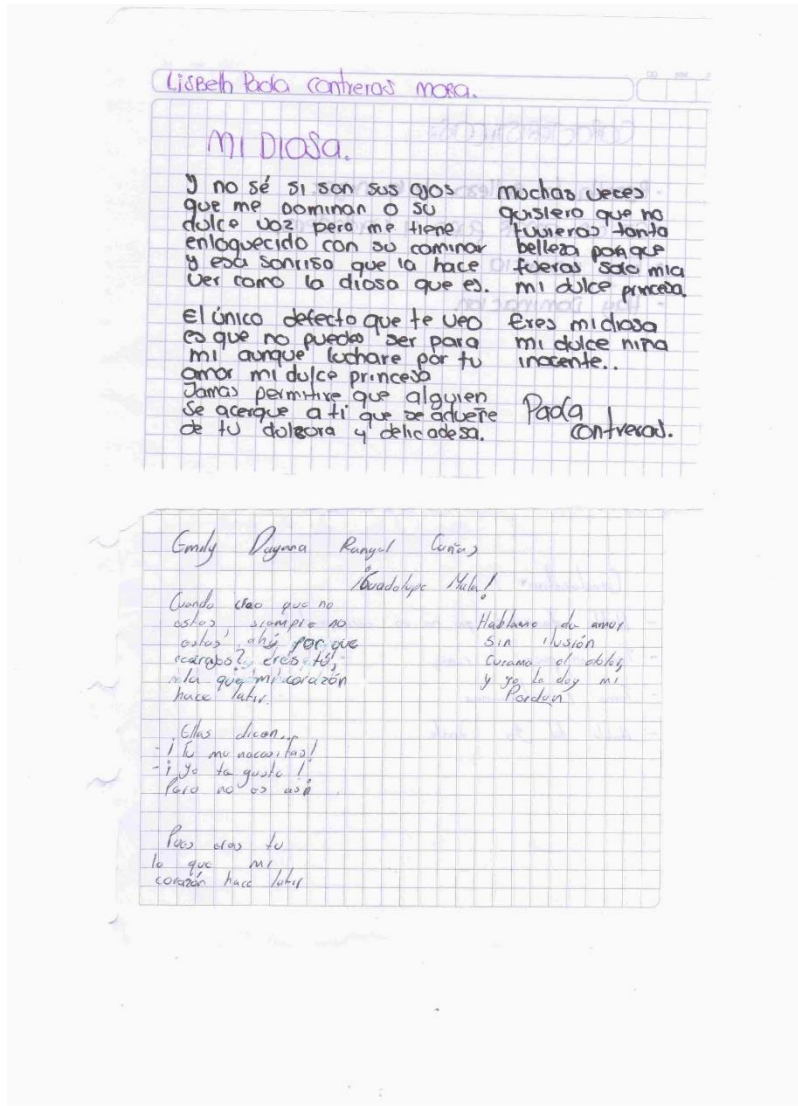 Lisbeth Paola contreras mora.
MI DIOSA.
y no sé si son sus ojos
que me dominan o su
dulce voz pero me tiene
enloquecido con su caminar
y esa sonrisa que la hace
ver como la diosa que es.
El único defecto que te veo
es que no puedes ser para
mi aunque luchare por tu
amor mi dulce princesa
Jamas permitire que alguien
se acerque a ti que se adueñe
de tu dulzura y delicadesa.
muchas veces
quisiera que no
tuvieras tanta
belleza porque
fueras solo mia
mi dulce princesa.
Eres mi diosa
mi dulce niña
inocente..
Paola
contreras.
Emily Dayana Rangel
¡Guadalupe Mula!
Cuando creo que no
estas siempre no
estas, ahý porque
eres tú,
la que mi corazón
hace latir.
Ellas dicen...
- ¡Tu me necesitas!
- ¡Yo te gusto!
Pero no es asi
Pues eres tu
lo que mi
corazón hace latir
Hablame de amor
sin ilusión
curame el dolor,
y yo te doy mi
Perdon